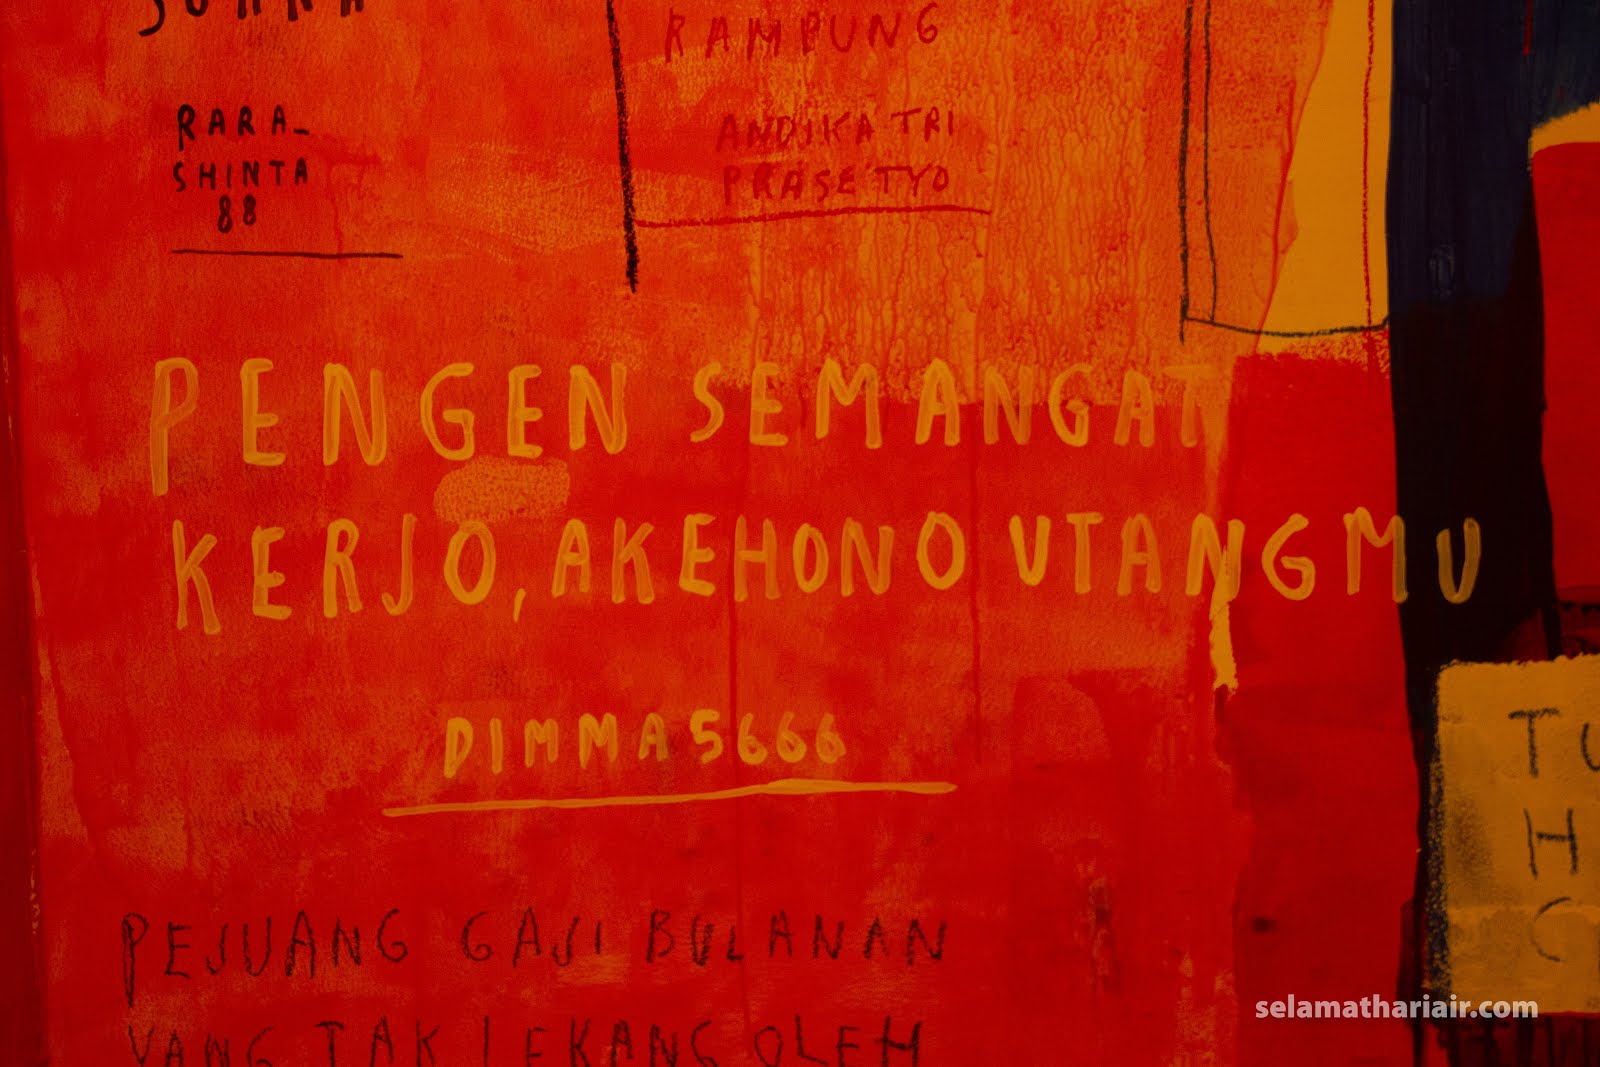 RAMPUNG
RARA-
SHINTA
88
ANDIKA TRI
PRASETYO
PENGEN SEMANGAT
KERJO, AKEHONO UTANGMU
DIMMA5666
PEJUANG GAJI BULANAN
YANG TAK LEKANG OLEH
TU
H
C
selamathariair.com